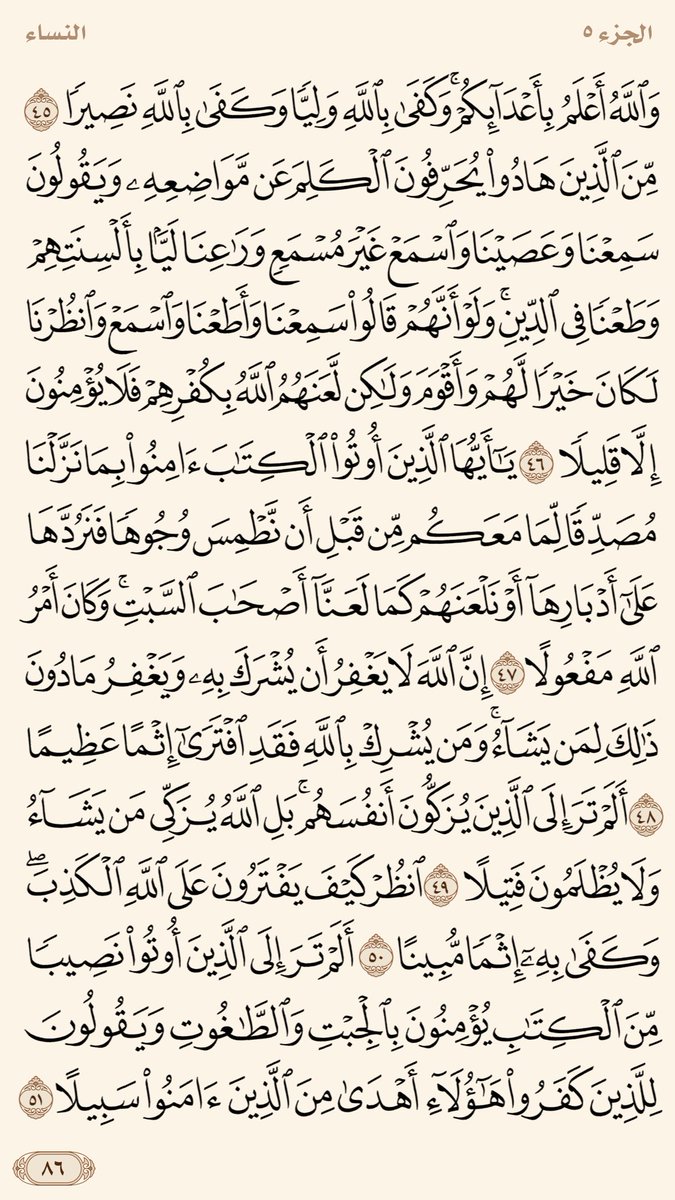 الجزء ٥
النساء
وَٱللَّهُ أَعۡلَمُ بِأَعۡدَآئِكُمۡۚ وَكَفَىٰ بِٱللَّهِ وَلِيّٗا وَكَفَىٰ بِٱللَّهِ نَصِيرٗا ٤٥
مِّنَ ٱلَّذِينَ هَادُواْ يُحَرِّفُونَ ٱلۡكَلِمَ عَن مَّوَاضِعِهِۦ وَيَقُولُونَ
سَمِعۡنَا وَعَصَيۡنَا وَٱسۡمَعۡ غَيۡرَ مُسۡمَعٖ وَرَٰعِنَا لَيَّۢا بِأَلۡسِنَتِهِمۡ
وَطَعۡنٗا فِي ٱلدِّينِۚ وَلَوۡ أَنَّهُمۡ قَالُواْ سَمِعۡنَا وَأَطَعۡنَا وَٱسۡمَعۡ وَٱنظُرۡنَا
لَكَانَ خَيۡرٗا لَّهُمۡ وَأَقۡوَمَ وَلَٰكِن لَّعَنَهُمُ ٱللَّهُ بِكُفۡرِهِمۡ فَلَا يُؤۡمِنُونَ
إِلَّا قَلِيلٗا ٤٦ يَٰٓأَيُّهَا ٱلَّذِينَ أُوتُواْ ٱلۡكِتَٰبَ ءَامِنُواْ بِمَا نَزَّلۡنَا
مُصَدِّقٗا لِّمَا مَعَكُم مِّن قَبۡلِ أَن نَّطۡمِسَ وُجُوهٗا فَنَرُدَّهَا
عَلَىٰٓ أَدۡبَارِهَآ أَوۡ نَلۡعَنَهُمۡ كَمَا لَعَنَّآ أَصۡحَٰبَ ٱلسَّبۡتِۚ وَكَانَ أَمۡرُ
ٱللَّهِ مَفۡعُولًا ٤٧ إِنَّ ٱللَّهَ لَا يَغۡفِرُ أَن يُشۡرَكَ بِهِۦ وَيَغۡفِرُ مَا دُونَ
ذَٰلِكَ لِمَن يَشَآءُۚ وَمَن يُشۡرِكۡ بِٱللَّهِ فَقَدِ ٱفۡتَرَىٰٓ إِثۡمًا عَظِيمًا
٤٨ أَلَمۡ تَرَ إِلَى ٱلَّذِينَ يُزَكُّونَ أَنفُسَهُمۚ بَلِ ٱللَّهُ يُزَكِّي مَن يَشَآءُ
وَلَا يُظۡلَمُونَ فَتِيلًا ٤٩ ٱنظُرۡ كَيۡفَ يَفۡتَرُونَ عَلَى ٱللَّهِ ٱلۡكَذِبَۖ
وَكَفَىٰ بِهِۦٓ إِثۡمٗا مُّبِينًا ٥٠ أَلَمۡ تَرَ إِلَى ٱلَّذِينَ أُوتُواْ نَصِيبٗا
مِّنَ ٱلۡكِتَٰبِ يُؤۡمِنُونَ بِٱلۡجِبۡتِ وَٱلطَّٰغُوتِ وَيَقُولُونَ
لِلَّذِينَ كَفَرُواْ هَٰٓؤُلَآءِ أَهۡدَىٰ مِنَ ٱلَّذِينَ ءَامَنُواْ سَبِيلًا ٥١
٨٦